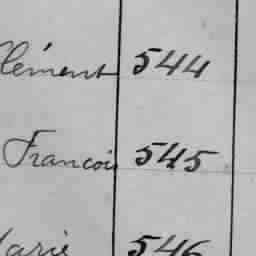 lément 544
Francois 545
arie 546